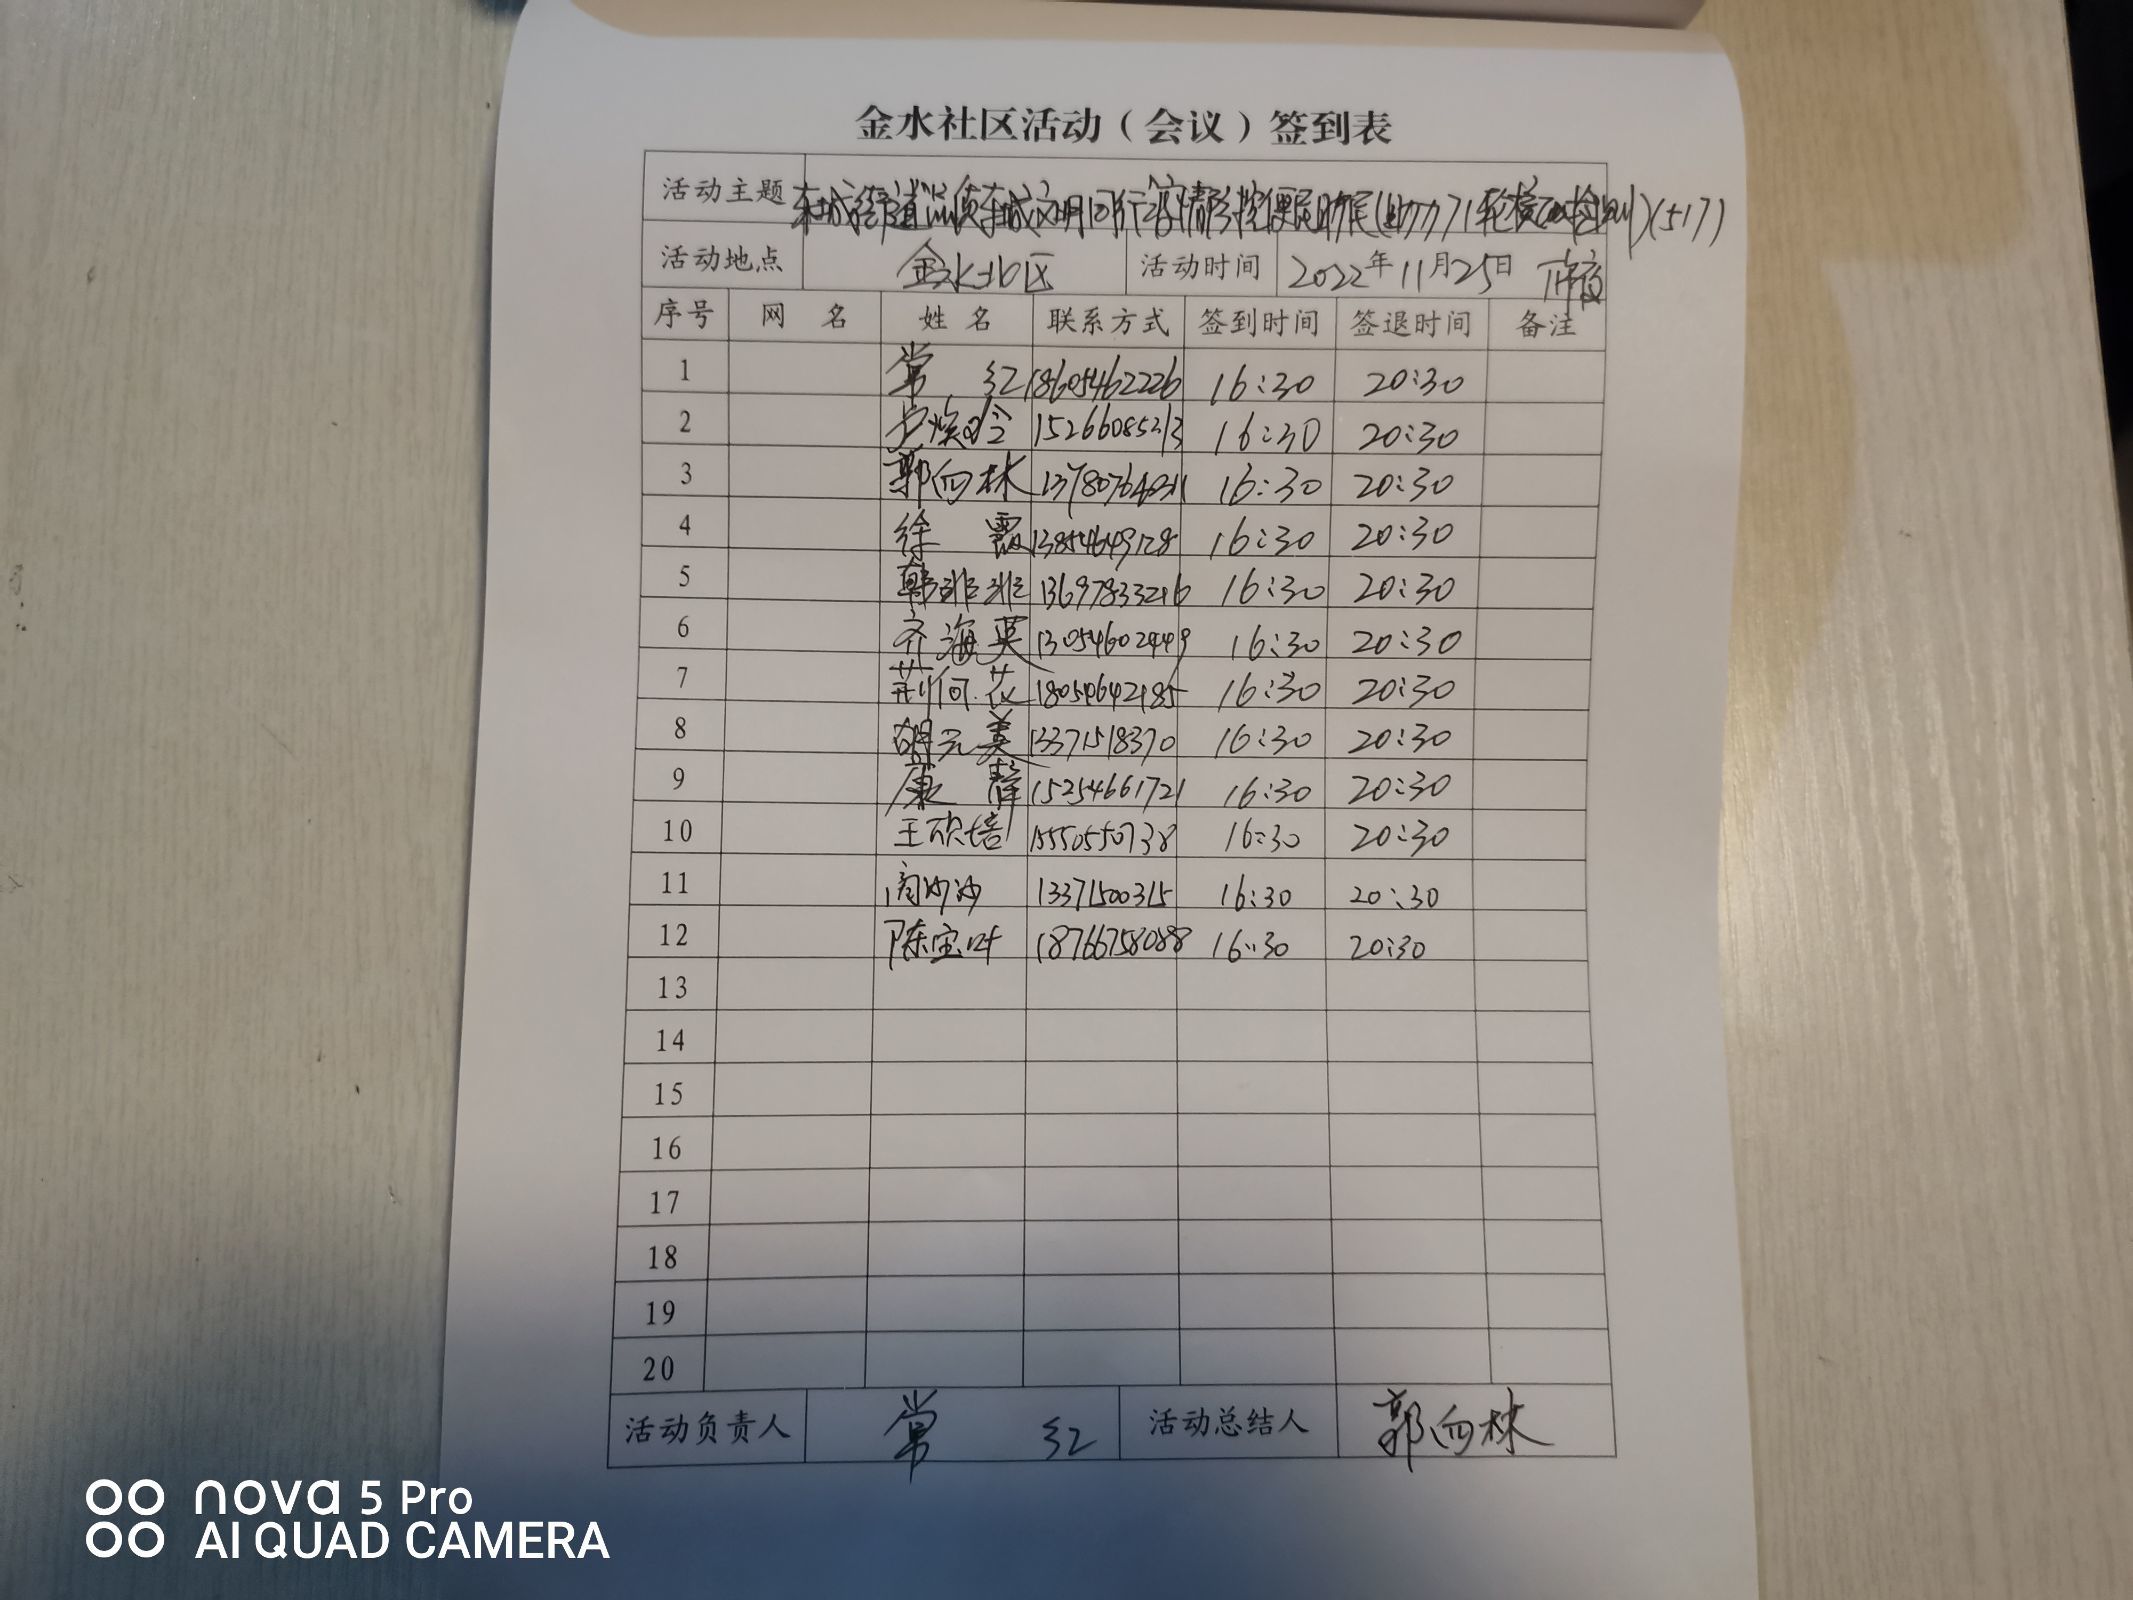 金水社区活动（会议）签到表
活动主题 东城街道温质东城文明同行疫情防控便民助民(助力71轮核酸检测)(517)
活动地点 金水北区 活动时间 2022年11月25日
序号 网 名 姓 名 联系方式 签到时间 签退时间 备注
1 常 红 18605462226 16:30 20:30
2 15266085213 16:30 20:30
3 郭向林 16:30 20:30
4 徐 霞 13854649128 16:30 20:30
5 韩非非 13697833216 16:30 20:30
6 齐海英 13054602449 16:30 20:30
7 荆何花 18054642185 16:30 20:30
8 胡元美 13371518370 16:30 20:30
9 康 静 15254661721 16:30 20:30
10 王欣培 15550550738 16:30 20:30
11 沙沙 13371500315 16:30 20:30
12 陈宝叶 18766758088 16:30 20:30
13
14
15
16
17
18
19
20
活动负责人 常 红 活动总结人 郭向林
nova 5 Pro
AI QUAD CAMERA